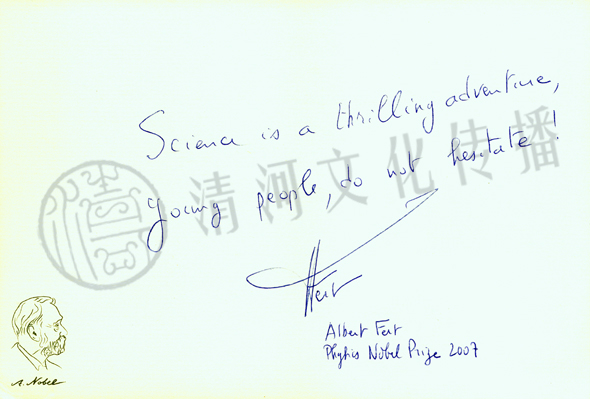 Science is a thrilling adventure,
young people, do not hesitate !
清河文化传播
Fert
Albert Fert
Physics Nobel Prize 2007
A. Nobel